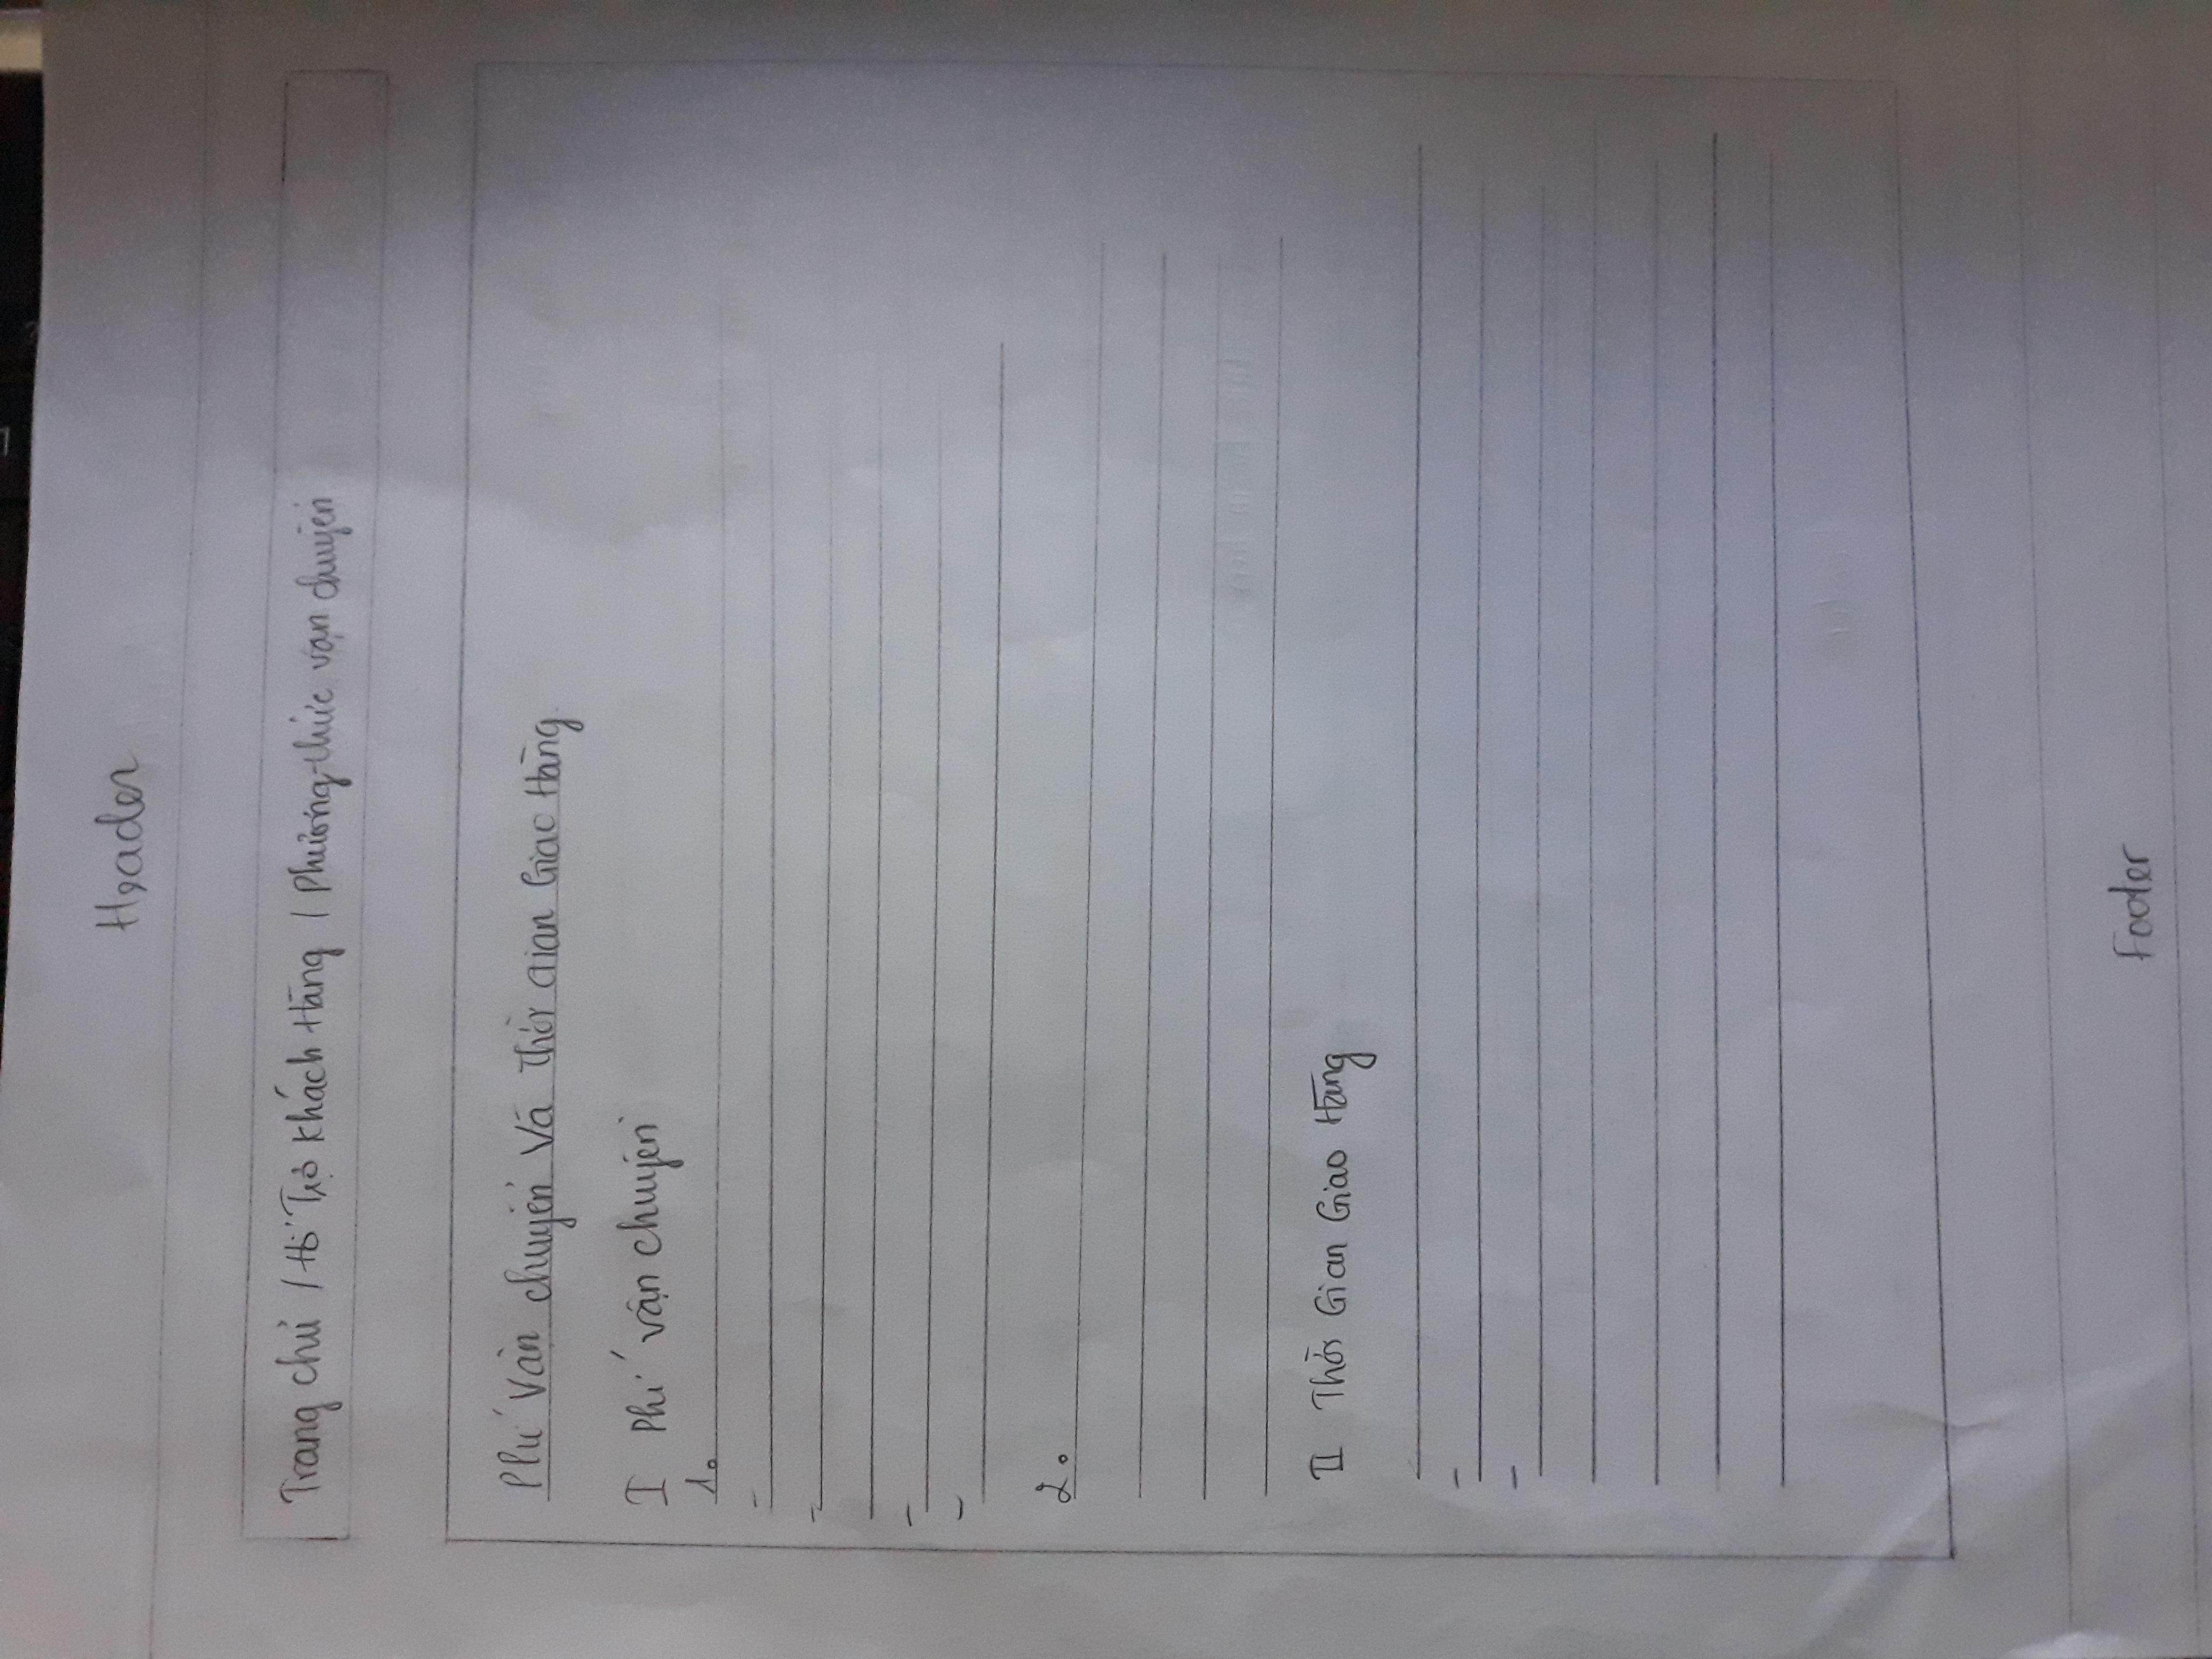 Header
Trang chủ / Hỗ Trợ Khách Hàng / Phương thức vận chuyển
Phí Vận chuyển Và Thời Gian Giao Hàng
I Phí vận chuyển
1.
-
-
-
-
2.
II Thời Gian Giao Hàng
-
-
Footer